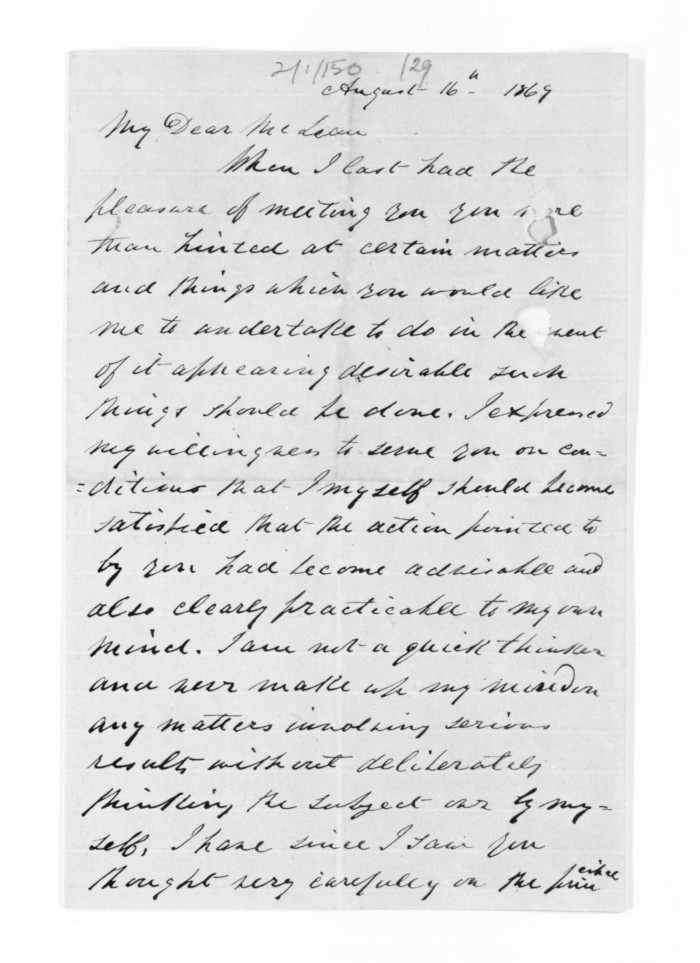 2/1/150 129
August 16th 1869
My Dear McLean
When I last had the
pleasure of meeting you you more
than hinted at certain matters
and things which you would like
me to undertake to do in the event
of it appearing desirable such
things should be done. I expressed
my willingness to serve you on con=
=ditions that I myself should become
satisfied that the action pointed to
by you had become advisable and
also clearly practicable to my own
mind. I am not a quick thinker
and never make up my mind on
any matters involving serious
results without deliberately
thinking the subject over by my=
self, I have since I saw you
thought very carefully on the principle